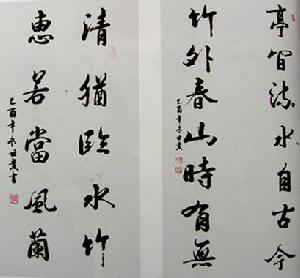 亭間流水自古今
竹外春山時有無
乙酉年
清猶臨水竹
惠若當風蘭
乙酉年
書